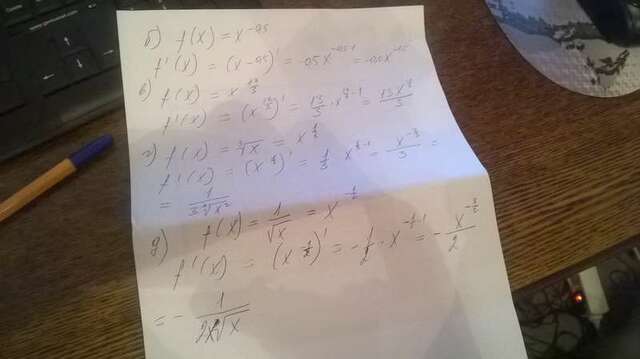 б) f(x) = x^-0,5
f'(x) = (x^-0,5)' = -0,5x^-0,5-1 = -0,5x^-1,5
в) f(x) = x^13/5
f'(x) = (x^13/5)' = 13/5 · x^13/5-1 = 13x^8/5 / 5
г) f(x) = ³√x = x^1/3
f'(x) = (x^1/3)' = 1/3 x^1/3-1 = x^-2/3 / 3 =
= 1 / 3³√x²
д) f(x) = 1/√x = x^-1/2
f'(x) = (x^-1/2)' = -1/2 · x^-1/2-1 = - x^-3/2 / 2